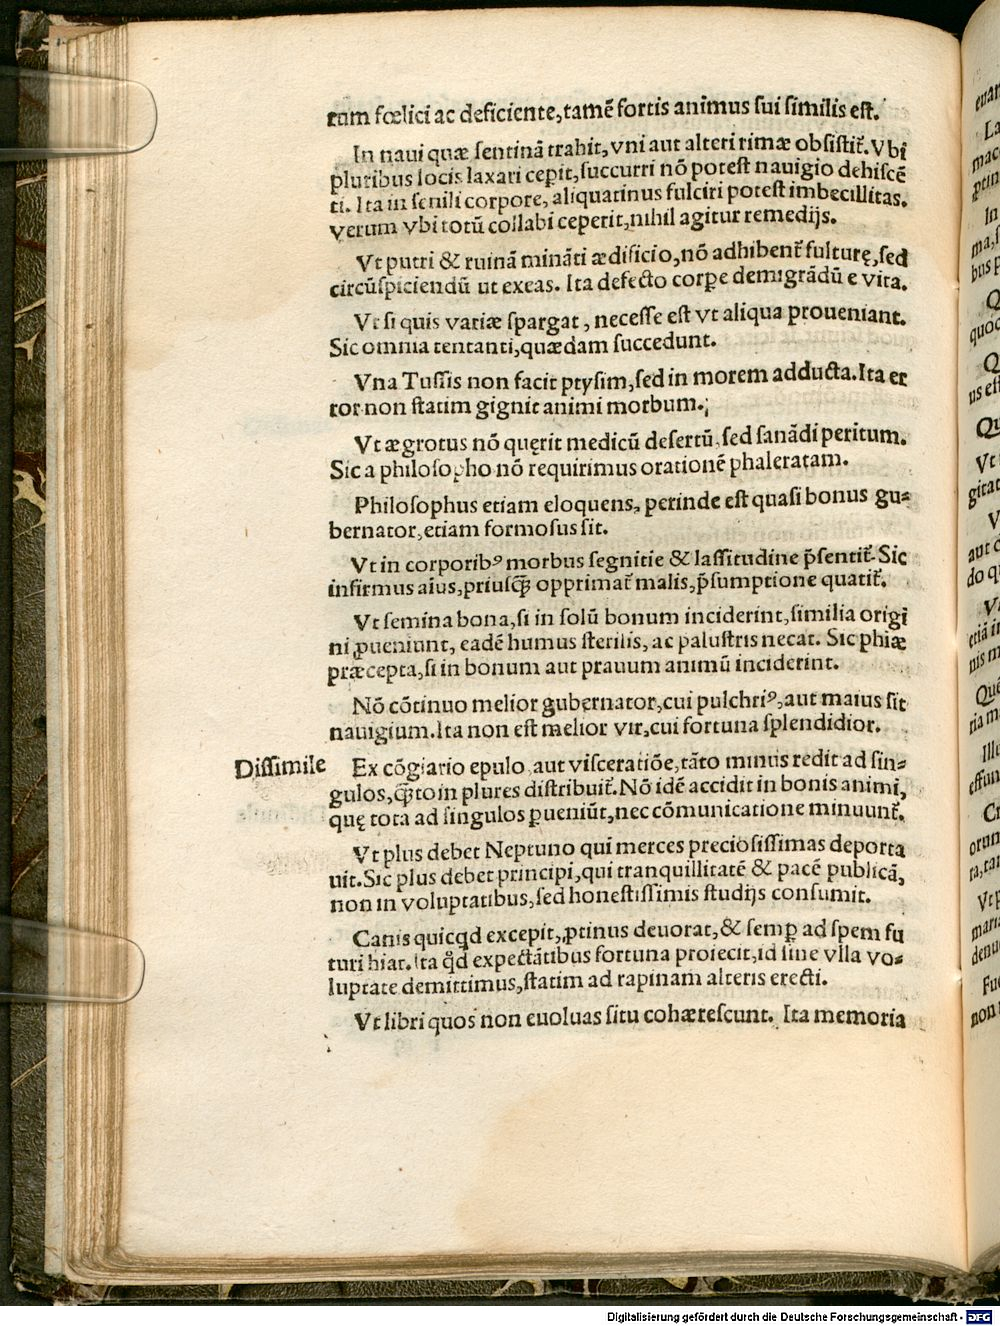 rum fœlici ac deficiente, tamē fortis animus sui similis est.
In naui quæ sentinā trahit, vni aut alteri rimæ obsistit̃. Vbi
pluribus locis laxari cepit, succurri nō potest nauigio dehiscē
ti. Ita in senili corpore, aliquatinus fulciri potest imbecillitas.
verum vbi totū collabi ceperit, nihil agitur remedijs.
Vt putri & ruinā mināti ædificio, nō adhibent̃ fulturę, sed
circūspiciendū ut exeas. Ita defecto corꝑe demigrādū e vita.
Vt si quis variæ spargat, necesse est vt aliqua proueniant.
Sic omnia tentanti, quædam succedunt.
Vna Tussis non facit ptysim, sed in morem adducta. Ita er
ror non statim gignit animi morbum.
Vt ægrotus nō quęrit medicū desertū, sed sanādi peritum.
Sic a philosopho nō requirimus orationē phaleratam.
Philosophus etiam eloquens, perinde est quasi bonus gu-
bernator, etiam formosus sit.
Vt in corporibꝰ morbus segnitie & lassitudine p̄sentit̃. Sic
infirmus aīus, priusꝗ̄ opprimat̃ malis, p̄sumptione quatit̃.
Vt semina bona, si in solū bonum inciderint, similia origi
ni ꝓueniunt, eadē humus sterilis, ac palustris necat. Sic phiæ
præcepta, si in bonum aut prauum animū inciderint.
Nō cōtinuo melior gubernator, cui pulchriꝰ, aut maius sit
nauigium. Ita non est melior vir, cui fortuna splendidior.
Dissimile
Ex cōgiario epulo aut visceratiōe, tāto minus redit ad sin-
gulos, ꝗ̄to in plures distribuit̃. Nō idē accidit in bonis animi,
quę tota ad singulos ꝑueniūt, nec cōmunicatione minuunt̃.
Vt plus debet Neptuno qui merces preciosissimas deporta
uit. Sic plus debet principi, qui tranquillitatē & pacē publicā,
non in voluptatibus, sed honestissimis studijs consumit.
Canis quicꝗd excepit, ꝓtinus deuorat, & semꝑ ad spem fu
turi hiat. Ita qd̛ expectātibus fortuna proiecit, id sine vlla vo-
luptate demittimus, statim ad rapinam alteris erecti.
Vt libri quos non euoluas situ cohærescunt. Ita memoria
Digitalisierung gefördert durch die Deutsche Forschungsgemeinschaft - DFG